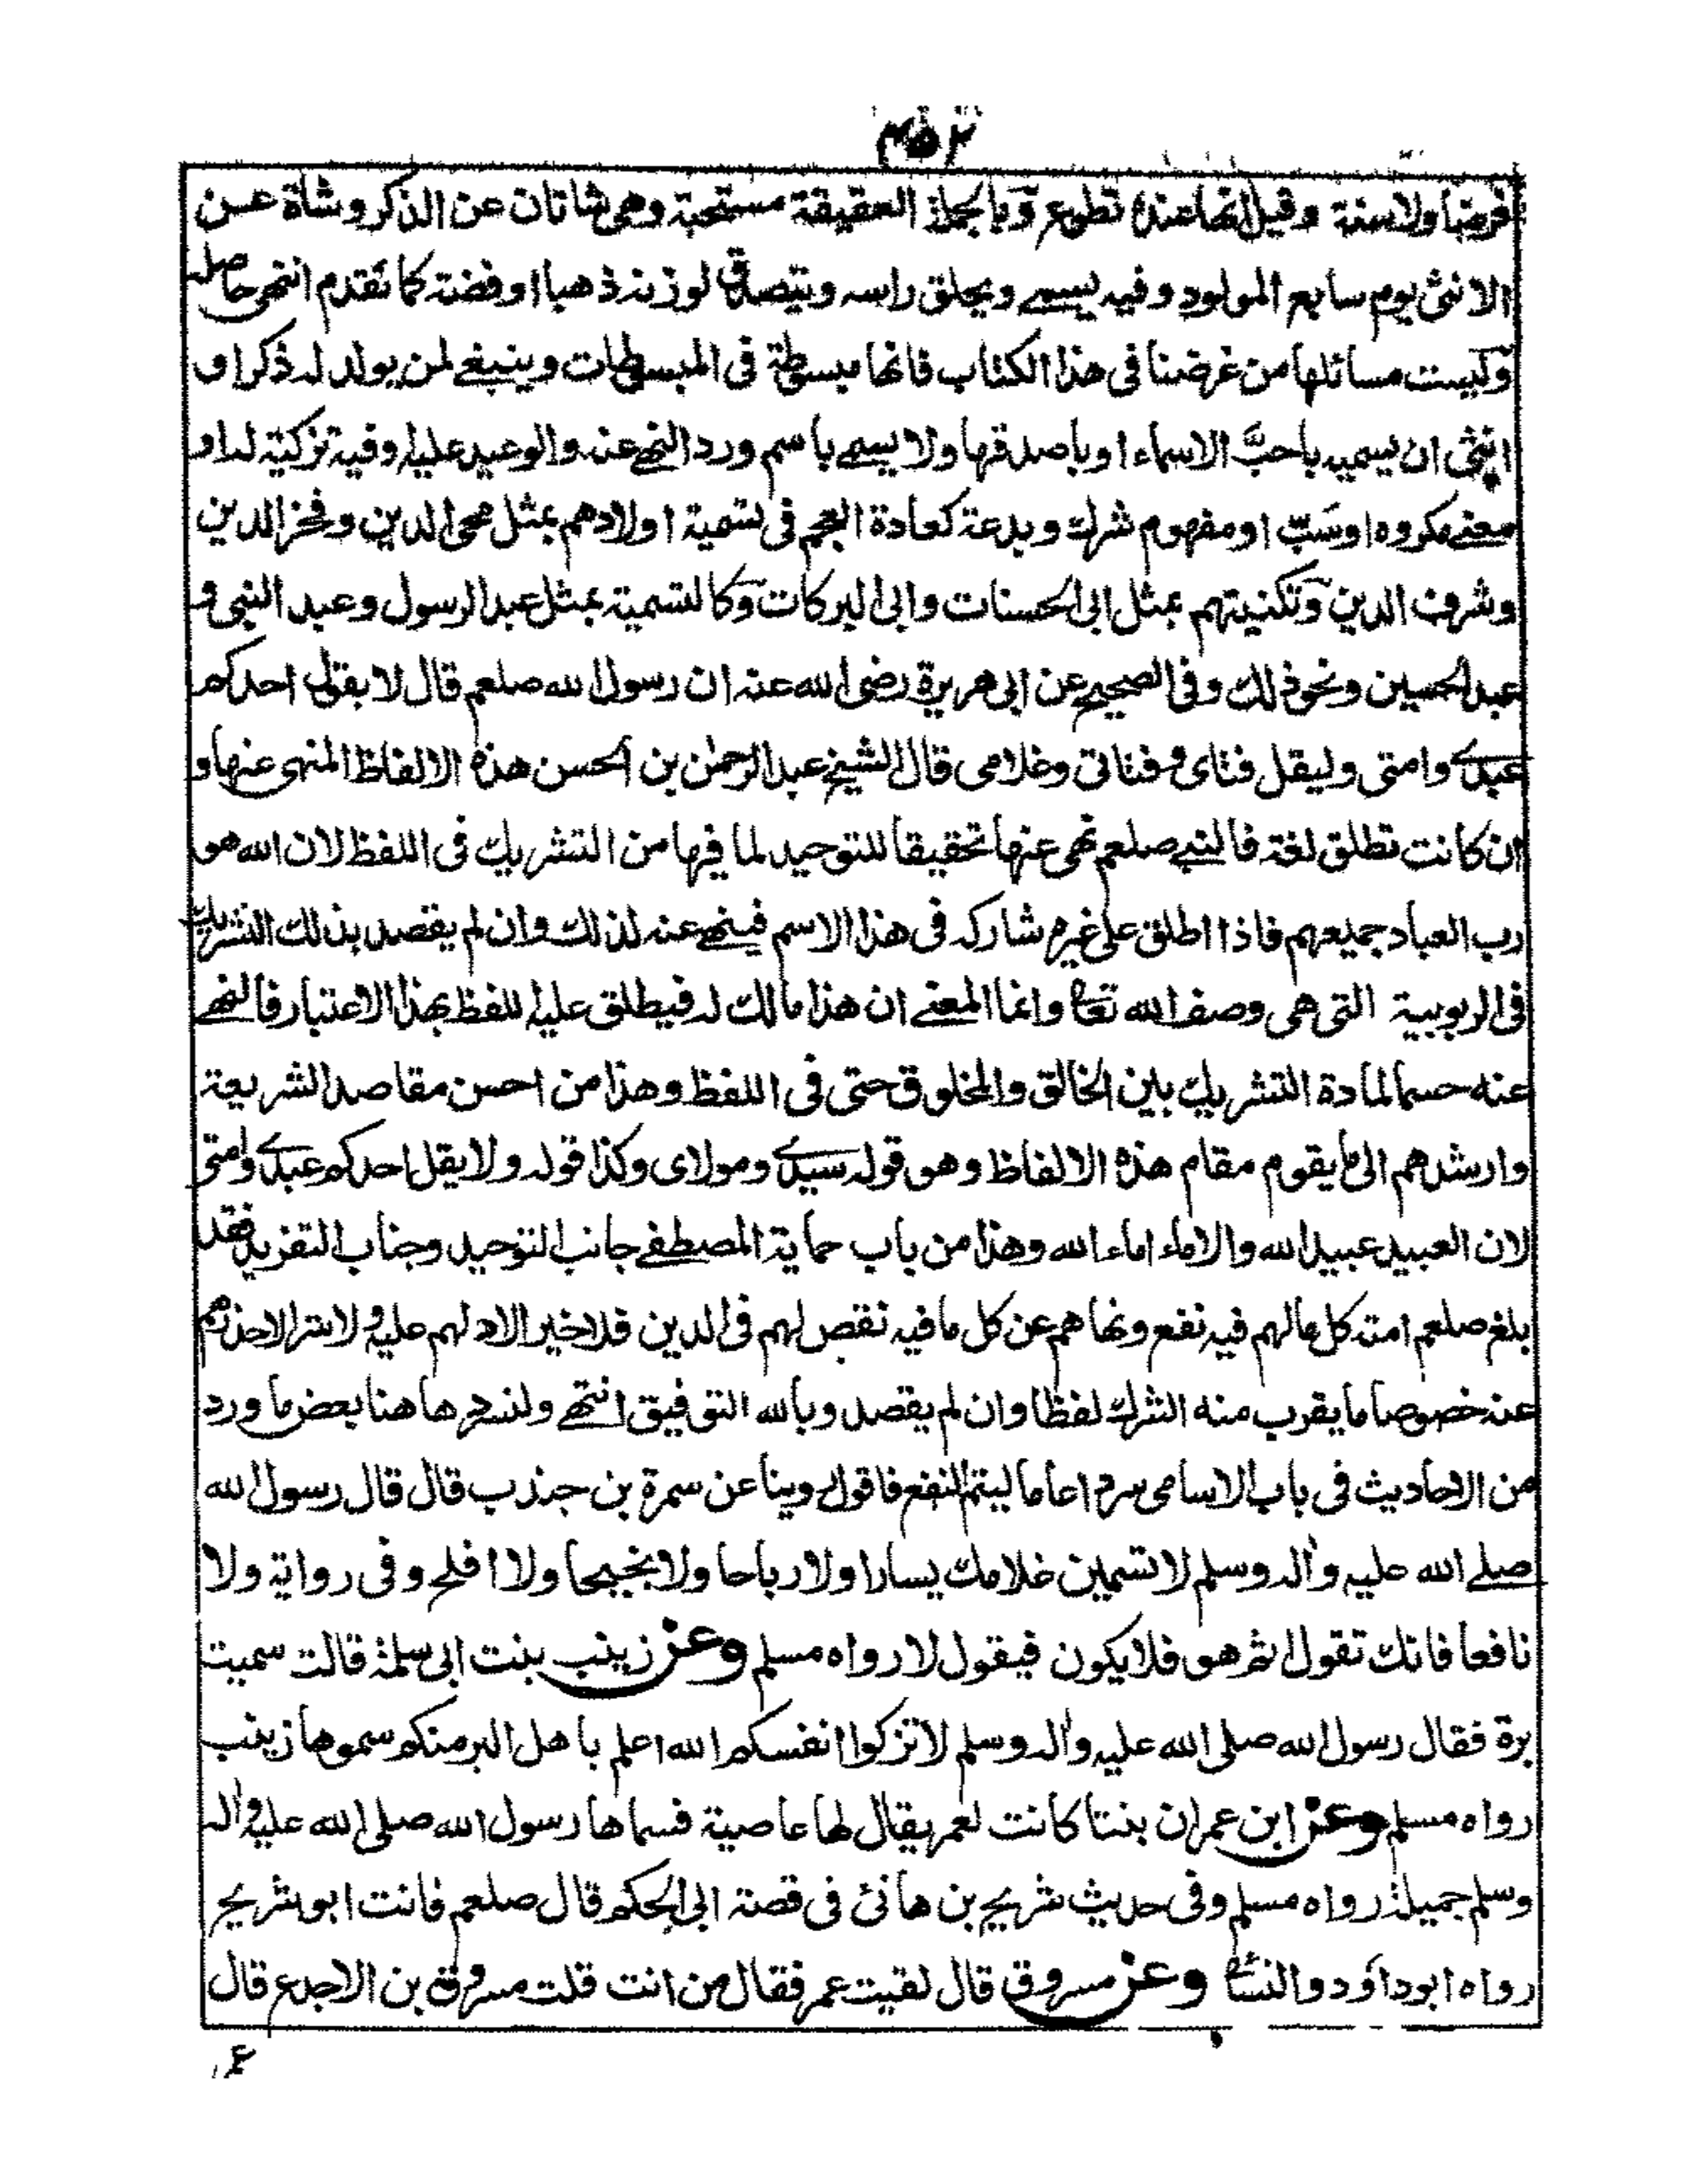 ٣٥٢
فرضا ولا سنة وقيل انها عنده تطوع وبالجملة العقيقة مستحبة وهي شاتان عن الذكر وشاة عن
الانثى يوم سابع المولود وفيه يسمى ويحلق راسه ويتصدق لوزنه ذهبا او فضة كما تقدم انتهى حاصله
وليست مسائلها من غرضنا في هذا الكتاب فانها مبسوطة في المبسوطات وينبغي لمن يولد له ذكر او
انثى ان يسميه باحبّ الاسماء او باصدقها ولا يسمى باسم ورد النهي عنه والوعيد عليه وفيه تزكية له او
معنى مكروه او سَبّ او مفهوم شرك وبدعة كعادة العجم في تسمية اولادهم بمثل محي الدين وفخر الدين
وشرف الدين وتكنيتهم بمثل ابي الحسنات وابي البركات وكالتسمية بمثل عبد الرسول وعبد النبي و
عبد الحسين ونحو ذلك وفي الصحيح عن ابي هريرة رضي الله عنه ان رسول الله صلعم قال لا يقول احدكم
عبدي وامتي وليقل فتاى وفتاتي وغلامى قال الشيخ عبد الرحمٰن بن الحسن هذه الالفاظ المنهى عنها و
ان كانت تطلق لغة فالنبي صلعم نهى عنها تحقيقا للتوحيد لما فيها من التشريك في اللفظ لان الله هو
رب العباد جميعهم فاذا اطلق على غيره شاركه في هذا الاسم فينهى عنه لذلك وان لم يقصد بذلك التشريك
في الربوبية التي هى وصف الله تعا وانما المعنى ان هذا مالك له فيطلق عليه اللفظ بهذا الاعتبار فالنهي
عنه حسما لمادة التشريك بين الخالق والمخلوق حتى في اللفظ وهذا من احسن مقاصد الشريعة
وارشدهم الى ما يقوم مقام هذه الالفاظ وهو قوله سيدي ومولاى وكذا قوله ولا يقل احدكم عبدي وامتي
لان العبيد عبيد الله والاماء اماء الله وهذا من باب حماية المصطفى جانب التوحيد وجناب التفريد فقد
بلغ صلعم امته كل مالهم فيه نفع ونهاهم عن كل ما فيه نقص لهم في الدين فلا خير الا دلهم عليه ولا شر الا حذرهم
عنه خصوصا ما يقرب منه الشرك لفظا وان لم يقصد وبالله التوفيق انتهى ولنسرد هاهنا بعض ما ورد
من الاحاديث في باب الاسامى سردا عاما ليتم النفع فاقول روينا عن سمرة بن جندب قال قال رسول الله
صلى الله عليه واٰله وسلم لا تسمين غلامك يسارا ولا رباحا ولا نجيحا ولا افلح وفي رواية ولا
نافعا فانك تقول اثم هو فلا يكون فيقول لا رواه مسلم وعن زينب بنت ابي سلمة قالت سميت
برة فقال رسول الله صلى الله عليه واٰله وسلم لا تزكوا انفسكم الله اعلم باهل البر منكم سموها زينب
رواه مسلم وعن ابن عمر ان بنتا كانت لعمر يقال لها عاصية فسماها رسول الله صلى الله عليه واٰله
وسلم جميلة رواه مسلم وفي حديث شريح بن هانئ في قصة ابي الحكم قال صلعم فانت ابو شريح
رواه ابو داود والنسائ وعن مسروق قال لقيت عمر فقال من انت قلت مسروق بن الاجدع قال